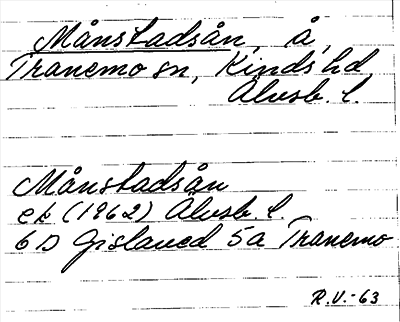 Månstadsån, å,
Tranemo sn, Kinds hd
Älvsb. l.
Månstadsån
ek (1962) Älvsb. l.
6 D Gislaved 5a Tranemo
R.V.-63